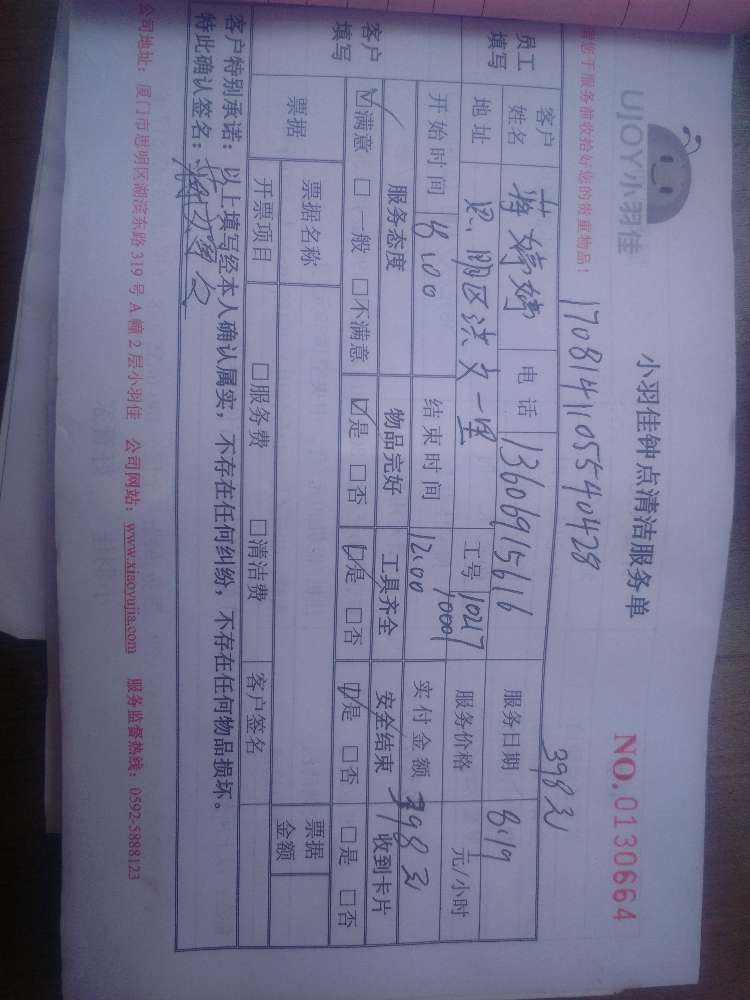 UJOY小羽佳
小羽佳钟点清洁服务单
NO.0130664
您于服务前收拾好您的贵重物品!
1708141105540428
398元
员工填写
客户姓名
电话 13606915616
服务日期 8.19
地址 思明区洪文一里
工号 10217
10001
服务价格 元/小时
开始时间 8:00
结束时间 12:00
实付金额 398元
客户填写
服务态度 物品完好 工具齐全 安全结束 收到卡片
☑满意 □一般 □不满意 ☑是 □否 ☑是 □否 ☑是 □否 □是 □否
票据 票据名称 票据金额
开票项目 □服务费 □清洁费 客户签名
客户特别承诺:以上填写经本人确认属实,不存在任何纠纷,不存在任何物品损坏。
特此确认签名:
公司地址:厦门市思明区湖滨东路319号A幢2层小羽佳 公司网站:www.xiaoyujia.com 服务监督热线:0592-5888123